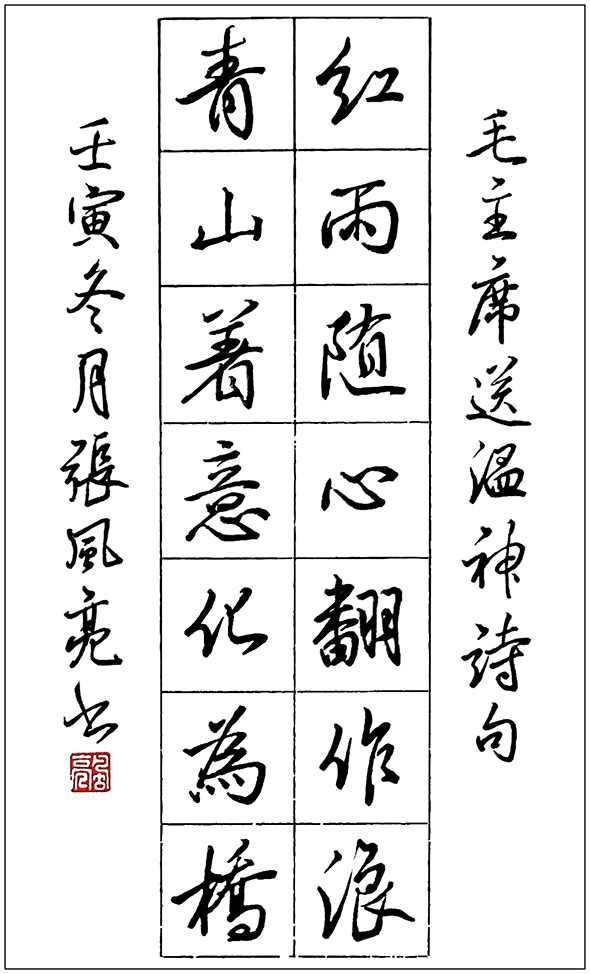 毛主席送温神诗句
红雨随心翻作浪
青山着意化為橋
壬寅冬月張風亮书